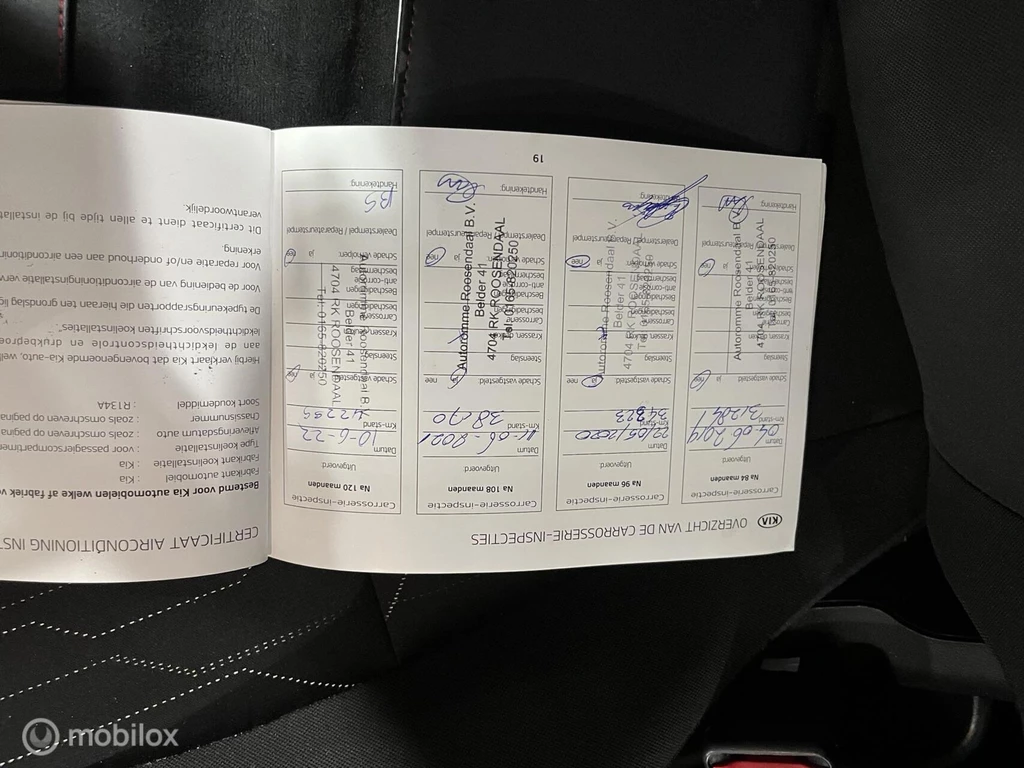 KIA
OVERZICHT VAN DE CARROSSERIE-INSPECTIES
Carrosserie-inspectie
Na 84 maanden
Uitgevoerd
Datum 04-06-2019
Km-stand 31284
Schade vastgesteld ja nee
Steenslag
Krassen, deuken
Carrosserie
Beschadigd
Schade verholpen ja nee
Dealerstempel / Reparateurstempel
Automme Roosendaal B.V.
Belder 41
4704 RK ROOSENDAAL
Tel. 0165-820250
Handtekening
Carrosserie-inspectie
Na 96 maanden
Uitgevoerd
Datum 22/05/2020
Km-stand 34323
Schade vastgesteld ja nee
Steenslag
Krassen, deuken
Carrosserie
Beschadigd
Schade verholpen ja nee
Dealerstempel / Reparateurstempel
Automme Roosendaal B.V.
Belder 41
4704 RK ROOSENDAAL
Tel. 0165-820250
Handtekening
Carrosserie-inspectie
Na 108 maanden
Uitgevoerd
Datum 11-06-2021
Km-stand 38170
Schade vastgesteld ja nee
Steenslag
Krassen, deuken
Carrosserie
Beschadigd
Schade verholpen ja nee
Dealerstempel / Reparateurstempel
Automme Roosendaal B.V.
Belder 41
4704 RK ROOSENDAAL
Tel. 0165-820250
Handtekening
Carrosserie-inspectie
Na 120 maanden
Uitgevoerd
Datum 10-6-22
Km-stand 42299
Schade vastgesteld ja nee
Steenslag
Krassen, deuken
Carrosserie
Beschadigd
Beschadigingen
anti-corrosie
bescherming
Schade verholpen ja nee
Dealerstempel / Reparateurstempel
Automme Roosendaal B.V.
Belder 41
4704 RK ROOSENDAAL
Tel. 0165-820250
Handtekening
BS
19
CERTIFICAAT AIRCONDITIONING INST
Bestemd voor Kia automobielen welke af fabriek v
Fabrikant automobiel : Kia
Fabrikant koelinstallatie : Kia
Type koelinstallatie : voor passagierscompartime
Afleveringsdatum auto : zoals omschreven op pagina
Chassisnummer : zoals omschreven op pagina
Soort koudemiddel : R134A
Hierbij verklaart Kia dat bovengenoemde Kia-auto, welke
aan de lekdichtheidscontrole en drukbeproe
lekdichtheidsvoorschriften koelinstallaties.
De typekeuringsrapporten die hieraan ten grondslag lig
Voor de bediening van de airconditioninginstallatie verw
Voor reparatie en/of onderhoud aan een airconditionin
erkenning.
Dit certificaat dient te allen tijde bij de installat
verantwoordelijk.
mobilox